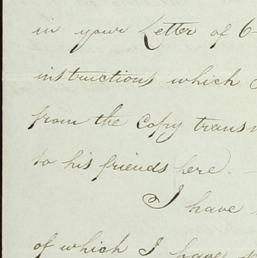 in your Letter of 6
instructions which
from the Copy trans
to his friends here.
I have
of which I have